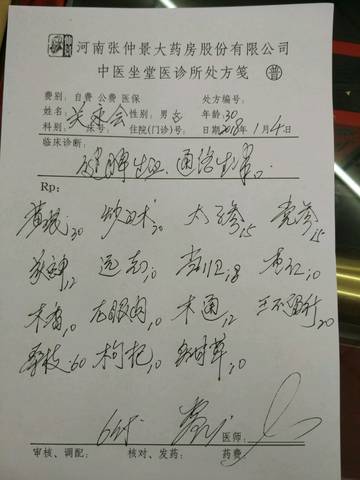 河南张仲景大药房股份有限公司
中医坐堂医诊所处方笺 普
费别：自费 公费 医保 处方编号：
姓名： 性别：男 女 年龄：30
科别： 床号： 住院(门诊)号： 日期2018年1月4日
临床诊断：
健脾生血、通络生津。
Rp:
黄芪30 炒白术20 太子参15 党参15
茯神12 远志10 当归18 枣仁10
木香10 龙眼肉10 木通12 王不留行20
桑枝60 枸杞10 10
医师：
审核、调配： 核对、发药： 药费：